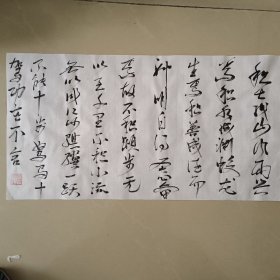 积土成山风雨兴
焉积水成渊蛟龙
生焉积善成德而
神明自得圣心备
焉故不积跬步无
以至千里不积小流
无以成江海骐骥一跃
不能十步驽马十
驾功在不舍